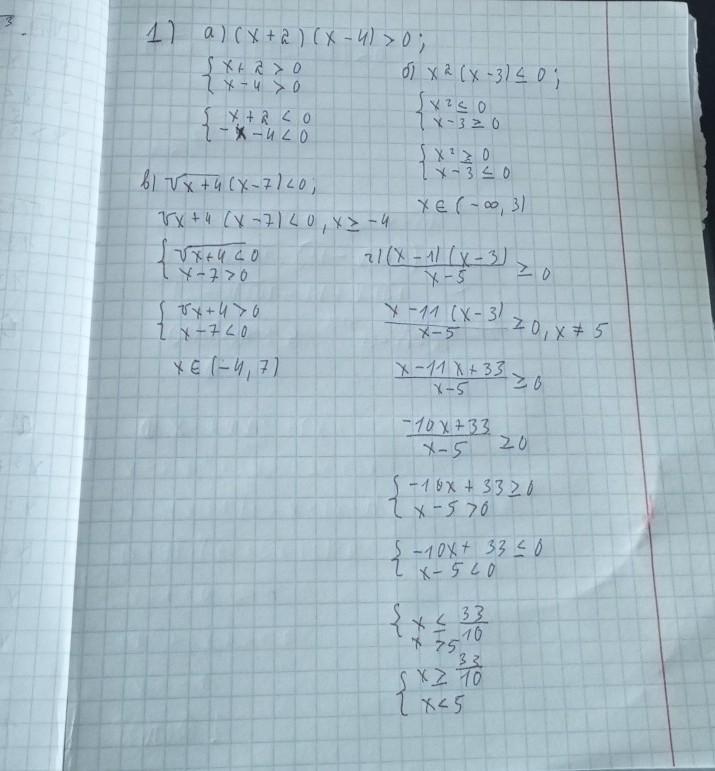 3.
1) а) (x+2)(x-4)>0;
{ x+2>0
x-4>0
{ x+2<0
-x-4<0
б) x²(x-3)≤0;
{ x²≤0
x-3≥0
{ x²≥0
x-3≤0
x∈(-∞,3)
в) √x+4(x-7)<0;
√x+4(x-7)<0, x≥-4
{ √x+4<0
x-7>0
{ √x+4>0
x-7<0
x∈(-4,7)
г) (x-1)(x-3)
x-5 ≥0
x-11(x-3)
x-5 ≥0, x≠5
x-11x+33
x-5 ≥0
-10x+33
x-5 ≥0
{ -10x+33≥0
x-5>0
{ -10x+33≤0
x-5<0
{ x≤33/10
x>5
{ x≥33/10
x<5